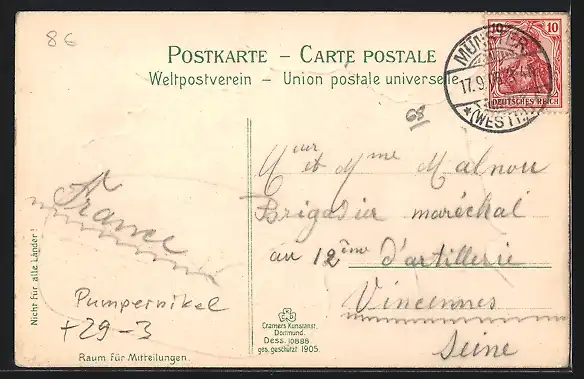 86
POSTKARTE – CARTE POSTALE
Weltpostverein – Union postale universelle
10
DEUTSCHES REICH
MÜNSTER
17.9.
*(WESTF.)
68
Meur et Mme Malnou
Brigadier maréchal
au 12ème d'artillerie
Vincennes
Seine
France
Pumpernikel
+29-3
Nicht für alle Länder!
Raum für Mitteilungen.
Cramers Kunstanst.
Dortmund.
Dess. 10888
ges. geschützt 1905.